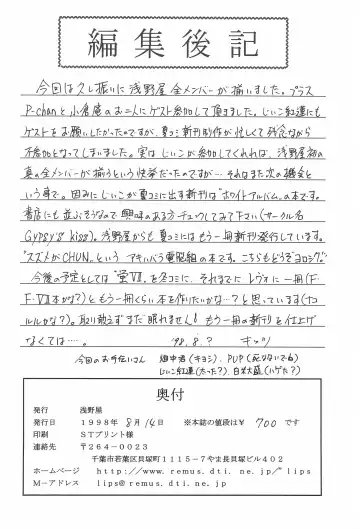 編集後記
今回は久し振りに浅野屋全メンバーが揃いました。プラス
P-chanと小倉庵のお二人にゲスト参加して頂きました。じいこ紅蓮にも
ゲストをお願いしたかったのですが、夏コミ新刊制作が忙しくて残念ながら
不参加となってしまいました。実はじいこが参加してくれれば、浅野屋初の
真の全メンバーが揃うという快挙だったのですが…それはまた次の機会と
いう事で。因みにじいこが夏コミに出す新刊は"ホワイトアルバム"の本です。
書店にも並ぶそうなので興味のある方チェックしてみて下さい(サークル名
Gypsy's kiss)。浅野屋からも夏コミにはもう一冊新刊発行しています。
"スズメがCHUN"という アキハバラ電脳組の本です。こちらもどうぞヨロシク。
今後の予定としては"蛍VII"を冬コミに、それまでにレヴォに一冊(F・
F・VIIネかな?)ともう一冊くらい本を作りたいかな…?と思っています(ナコ
ルルかな?)。取り敢えずまだ眠れません!もう一冊の新刊を仕上げ
なくては…。 '98.8.? キッツ
今回のお手伝いさん 畑中君(キヨシ)、PUP(死なないでね)
じいこ紅蓮(太った?)、白米大盛(ハゲた?)
奥付
発行 浅野屋
発行日 1998年8月14日 ※本誌の値段は¥ 700 です
印刷 STプリント様
連絡先 〒264-0023
千葉市若葉区貝塚町1115-7やま長貝塚ビル402
ホームページ http://www.remus.dti.ne.jp/~lips
M-アドレス lips@remus.dti.ne.jp